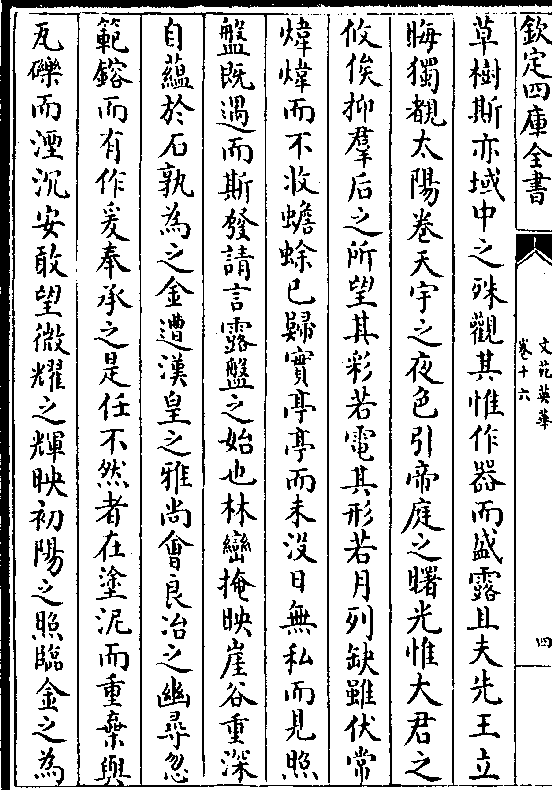 欽定四庫全書
文苑英華
卷十六
四
草樹斯亦域中之殊觀其惟作器而盛露且夫先王立
晦獨覩太陽卷天宇之夜色引帝庭之曙光惟大君之
攸俟抑羣后之所望其彩若電其形若月列缺雖伏常
煒煒而不收蟾蜍已歸實亭亭而未没日無私而見照
盤既遇而斯發請言露盤之始也林巒掩映崖谷重深
自蘊於石孰為之金遭漢皇之雅尚會良冶之幽尋忽
範鎔而有作爰奉承之是任不然者在塗泥而重棄與
瓦礫而湮沉安敢望微耀之輝映初陽之照臨金之為